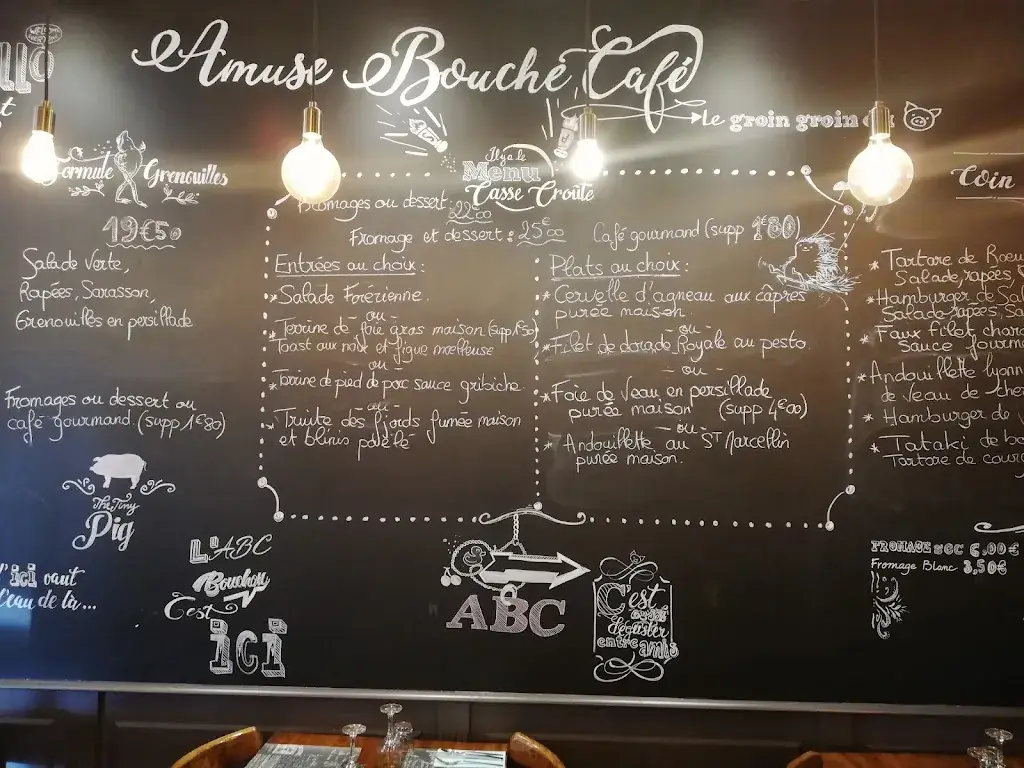 Amuse Bouche Café
Le groin groin
Formule Grenouilles
19€50
Salade verte,
Rapées, Sarasson,
Grenouilles en persillade
Fromages ou dessert ou
café gourmand (supp 1€80)
The Tiny
Pig
ici vaut
L'eau de là...
L'ABC
Bouchon
C'est
ici
Il y a le
Menu
Casse Croûte
Fromages ou dessert: 22€00
Fromage et dessert: 25€00
Café gourmand (supp 1€80)
Entrées au choix:
* Salade Forézienne.
ou
* Terrine de foie gras maison (supp 1€50)
Toast aux noix et figue moelleuse
ou
* Terrine de pied de porc sauce gribiche.
ou
* Truite des fjords fumée maison
et blinis poêlé
Plats au choix:
* Cervelle d'agneau aux câpres
purée maison.
- ou -
* Filet de dorade Royale au pesto.
- ou -
* Foie de Veau en persillade
purée maison (supp 4€00)
- ou -
* Andouillette au St Marcellin
purée maison.
ABC
C'est
déguster
entre amis
Coin
* Tartare de Boeu
Salade, rapées
* Hamburger de Sa
Salade, rapées, Sa
* Faux filet charo
Sauce fourm
* Andouillette lyonn
de veau de cher
* Hamburger de v
* Tataki de bo
Tartare de courg
FROMAGE SEC 6,00€
Fromage Blanc 3,50€